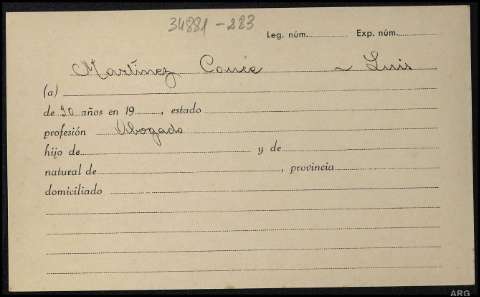 34881-223
Leg. núm. Exp. núm.
Martínez - Luis
(a)
de 30 años en 19, estado
profesión Abogado
hijo de y de
natural de, provincia
domiciliado
ARG